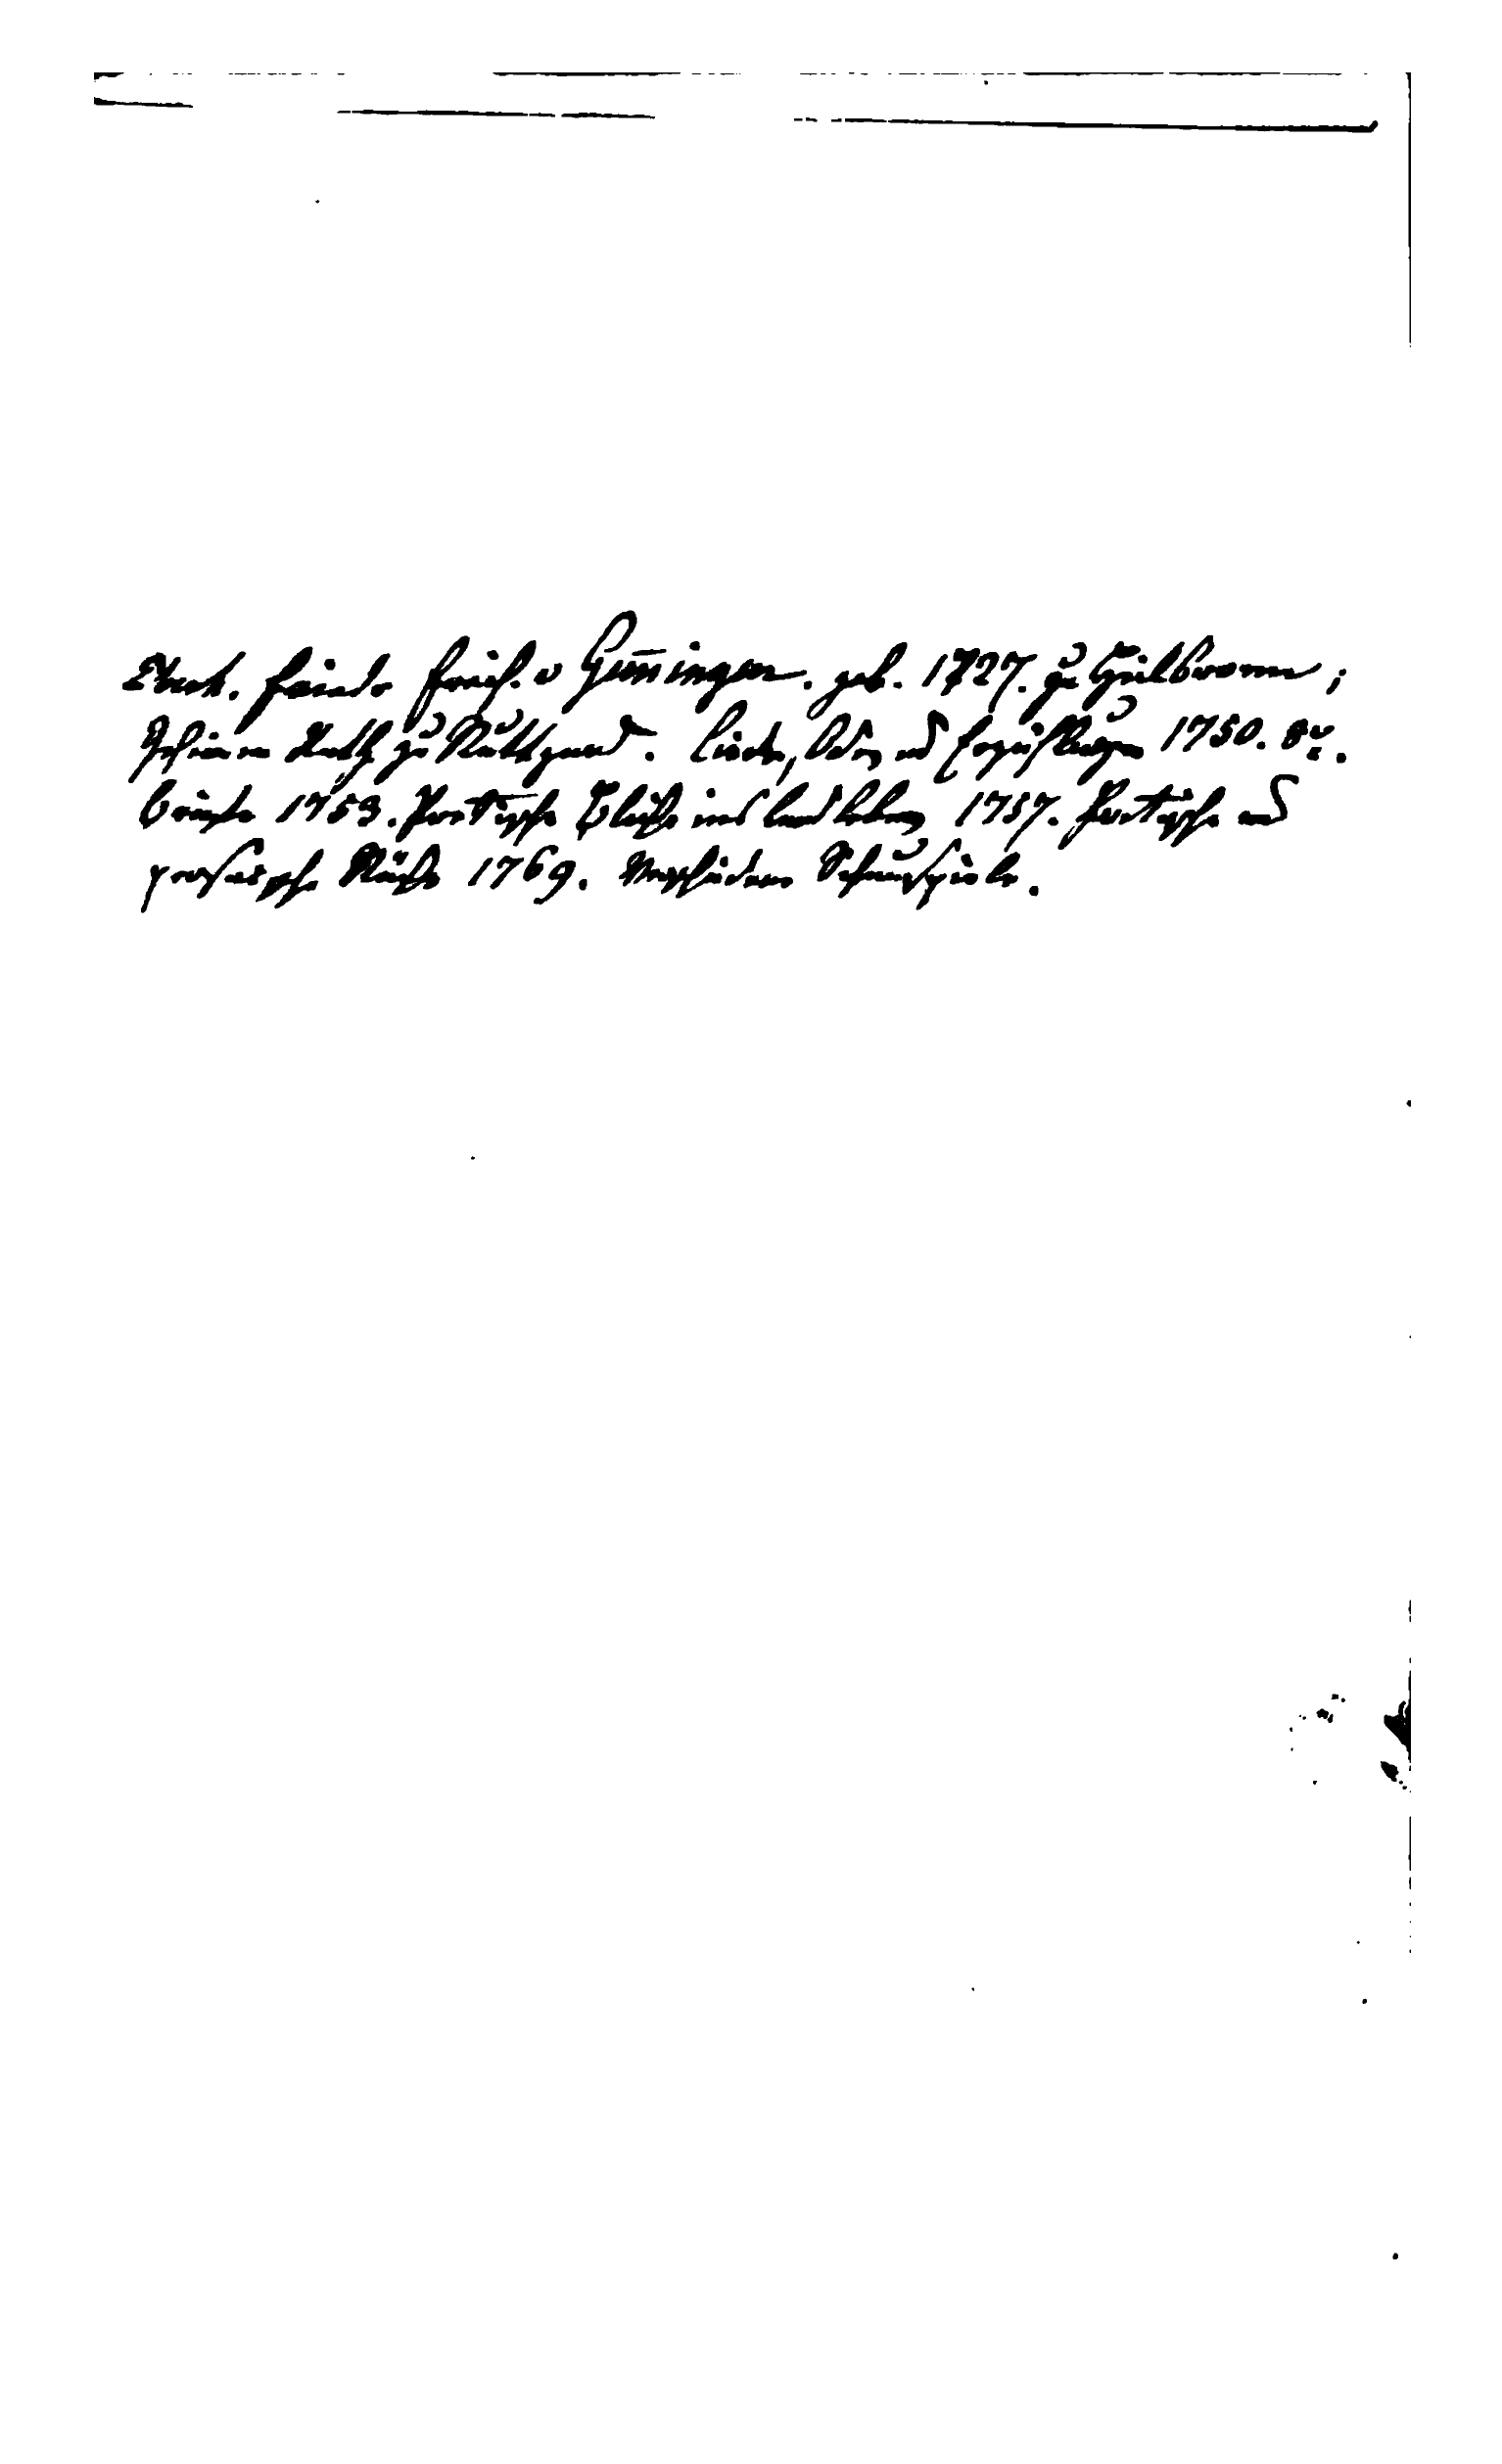 Eberh. Friedr. Freih. v Gem̄ingen. geb. 1727. zu Heilbronn;
Geheimer Rath zu Stuttgard. Lieder, Oden und Erzählungen 1750. 8º.
Briefe 1753. Poetische Blicke ins Landleben 1757. Poetische und
prosaische Stücke 1769. Verschiedene Schauspiele.